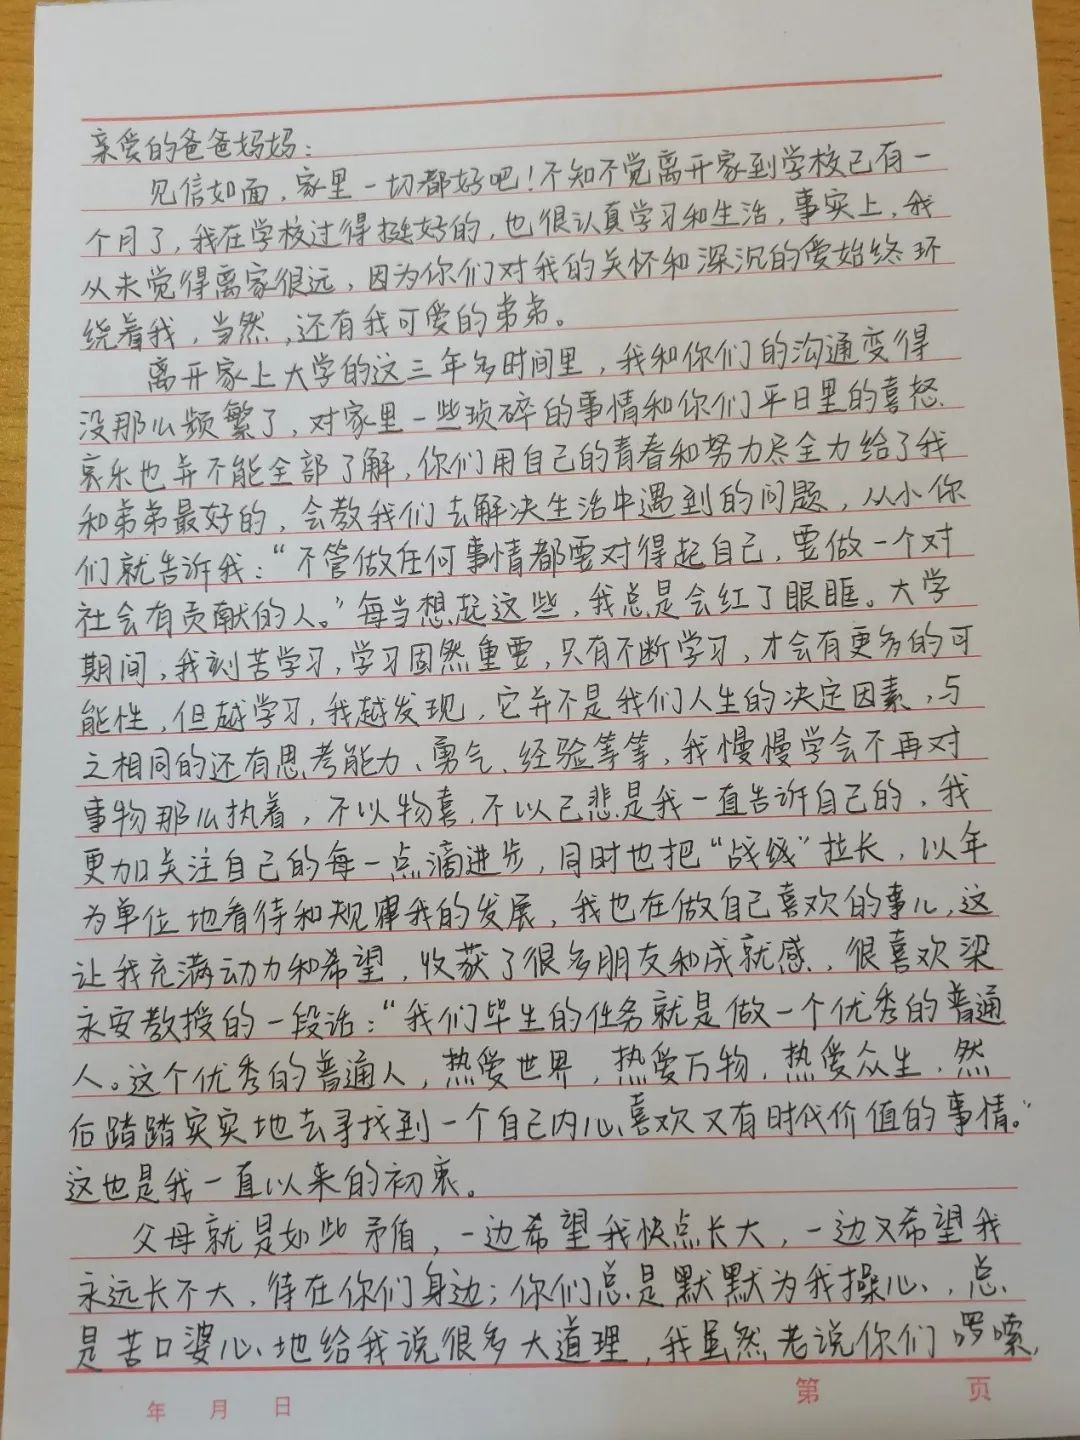 亲爱的爸爸妈妈：
见信如面，家里一切都好吧！不知不觉离开家到学校已有一
个月了，我在学校过得挺好的，也很认真学习和生活，事实上，我
从未觉得离家很远，因为你们对我的关怀和深沉的爱始终环
绕着我，当然，还有我可爱的弟弟。
离开家上大学的这三年多时间里，我和你们的沟通变得
没那么频繁了，对家里一些琐碎的事情和你们平日里的喜怒
哀乐也并不能全部了解，你们用自己的青春和努力尽全力给了我
和弟弟最好的，会教我们去解决生活中遇到的问题，从小你
们就告诉我：“不管做任何事情都要对得起自己，要做一个对
社会有贡献的人。”每当想起这些，我总是会红了眼眶。大学
期间，我刻苦学习，学习固然重要，只有不断学习，才会有更多的可
能性，但越学习，我越发现，它并不是我们人生的决定因素，与
之相同的还有思考能力、勇气、经验等等，我慢慢学会不再对
事物那么执着，不以物喜，不以己悲是我一直告诉自己的，我
更加关注自己的每一点滴进步，同时也把“战线”拉长，以年
为单位地看待和规律我的发展，我也在做自己喜欢的事儿，这
让我充满动力和希望，收获了很多朋友和成就感，很喜欢梁
永安教授的一段话：“我们毕生的任务就是做一个优秀的普通
人。这个优秀的普通人，热爱世界，热爱万物，热爱众生，然
后踏踏实实地去寻找到一个自己内心喜欢又有时代价值的事情。”
这也是我一直以来的初衷。
父母就是如些矛盾，一边希望我快点长大，一边又希望我
永远长不大，待在你们身边；你们总是默默为我操心，总
是苦口婆心地给我说很多大道理，我虽然老说你们啰嗦，
年 月 日 第 页